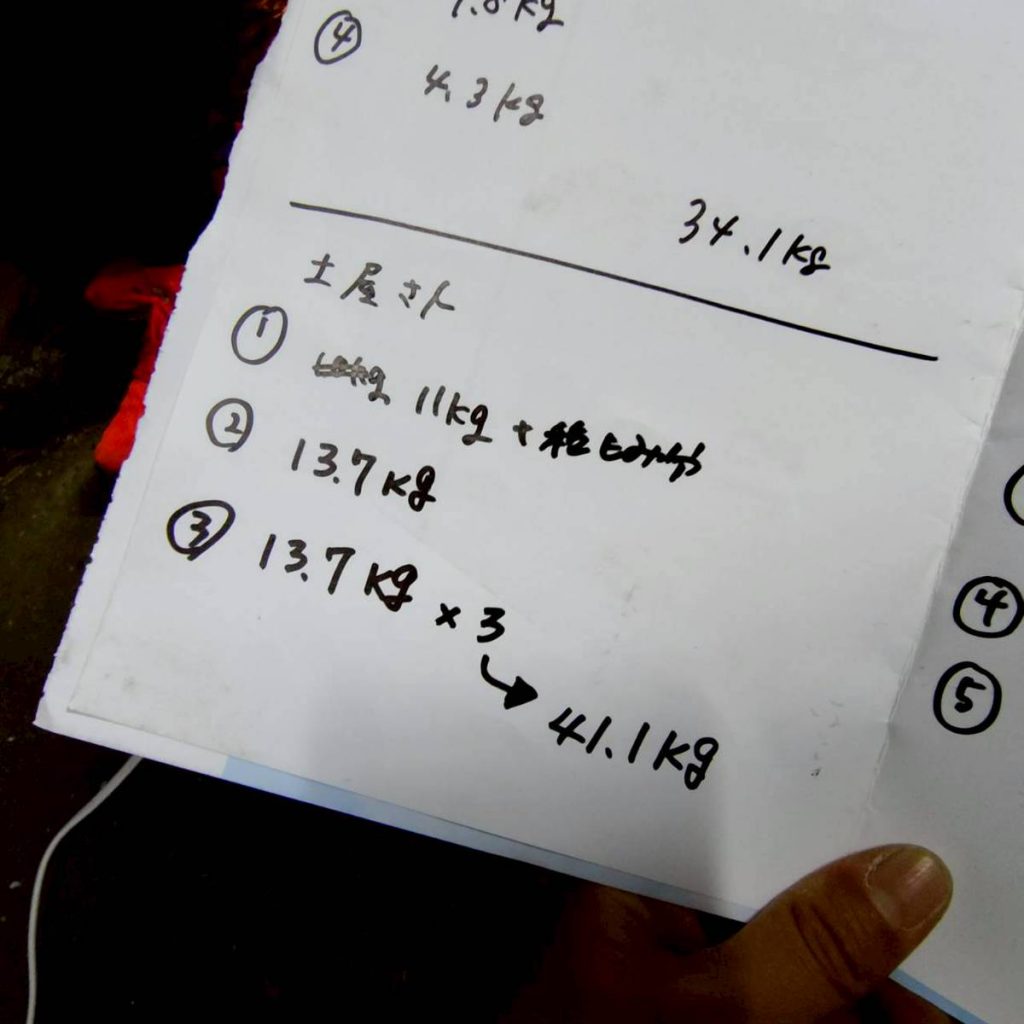 ④
4.3kg
34.1kg
土屋さん
① 11kg +
② 13.7kg
③ 13.7kg × 3
41.1kg
④
⑤